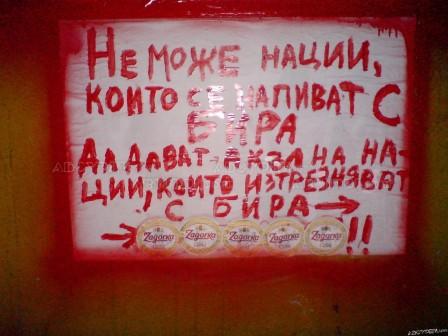 Не може нации,
които се напиват с
бира
да дават акъл на на-
ции, които изтрезняват
с бира →
→ Zagorka Zagorka Zagorka Zagorka Zagorka !!